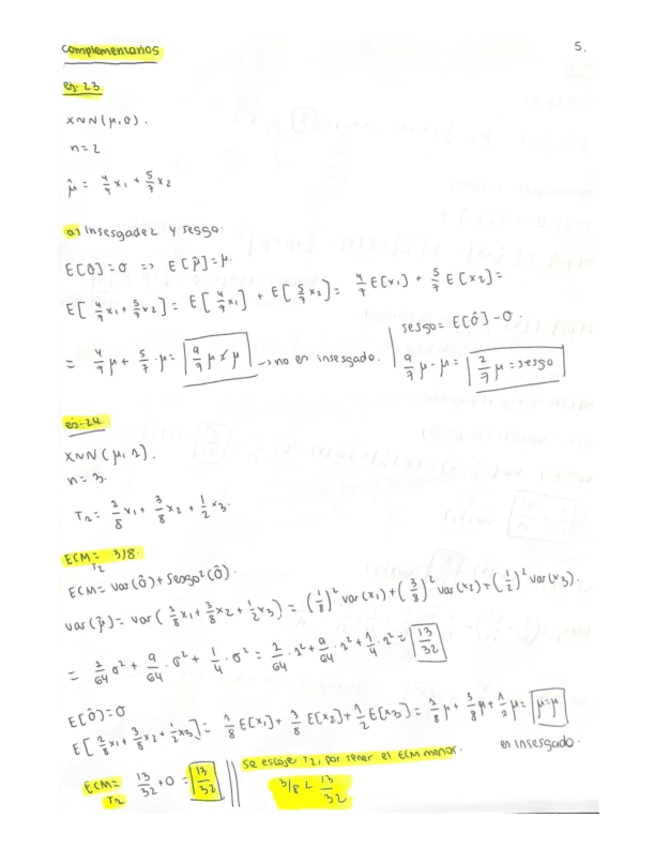 complementarios 5.
ej. 23
X∼N(μ,σ).
n=2
μ̂ = 4/7 x₁ + 5/7 x₂
a) Insesgadez y sesgo.
E[θ̂]=θ ⇒ E[μ̂]=μ.
E[4/7 x₁ + 5/7 x₂] = E[4/7 x₁] + E[5/7 x₂] = 4/7 E[x₁] + 5/7 E[x₂] =
= 4/7 μ + 5/7 · μ = 9/7 μ ≠ μ → no es insesgado.
sesgo = E[θ̂] − θ.
9/7 μ − μ = 2/7 μ = sesgo
ej. 24
X∼N(μ,1).
n=3.
T₂ = 1/8 x₁ + 3/8 x₂ + 1/2 x₃.
ECM T₁ = 3/8.
ECM = var(θ̂) + Sesgo²(θ̂).
var(μ̂) = var(1/8 x₁ + 3/8 x₂ + 1/2 x₃) = (1/8)² var(x₁) + (3/8)² var(x₂) + (1/2)² var(x₃).
= 1/64 σ² + 9/64 · σ² + 1/4 · σ² = 1/64 · 1² + 9/64 · 1² + 1/4 · 1² = 13/32
E[θ̂]=θ
E[1/8 x₁ + 3/8 x₂ + 1/2 x₃] = 1/8 E[x₁] + 3/8 E[x₂] + 1/2 E[x₃] = 1/8 μ + 3/8 μ + 1/2 μ = μ=μ
es insesgado.
ECM T₂ = 13/32 + 0 = 13/32
Se escoje T₂, por tener el ECM menor.
3/8 < 13/32